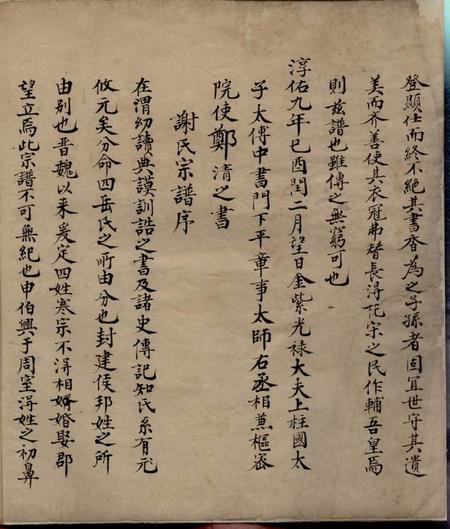 登顯仕而終不絕其書香為之子孫者固宜世守其遺
美而齐善使其衣冠弗替長淂花宗之民作輔吾皇焉
則玆譜也雖傳之無窮可也
淳佑九年巳酉閏二月望日金紫光祿大夫上柱國太
子太傅中書門下平章事太師右丞相蒹樞宻
院使鄭清之書
謝氏宗譜序
在渭幼讀典謨訓誥之書及諸史傳記知氏系有元
攸元矣分命四岳氏之所由分也封建侯邦姓之所
由别也晋魏以来爰定四姓寒宗不淂相婿婚娶郡
望立焉此宗譜不可無紀也申伯興于周室淂姓之初鼻